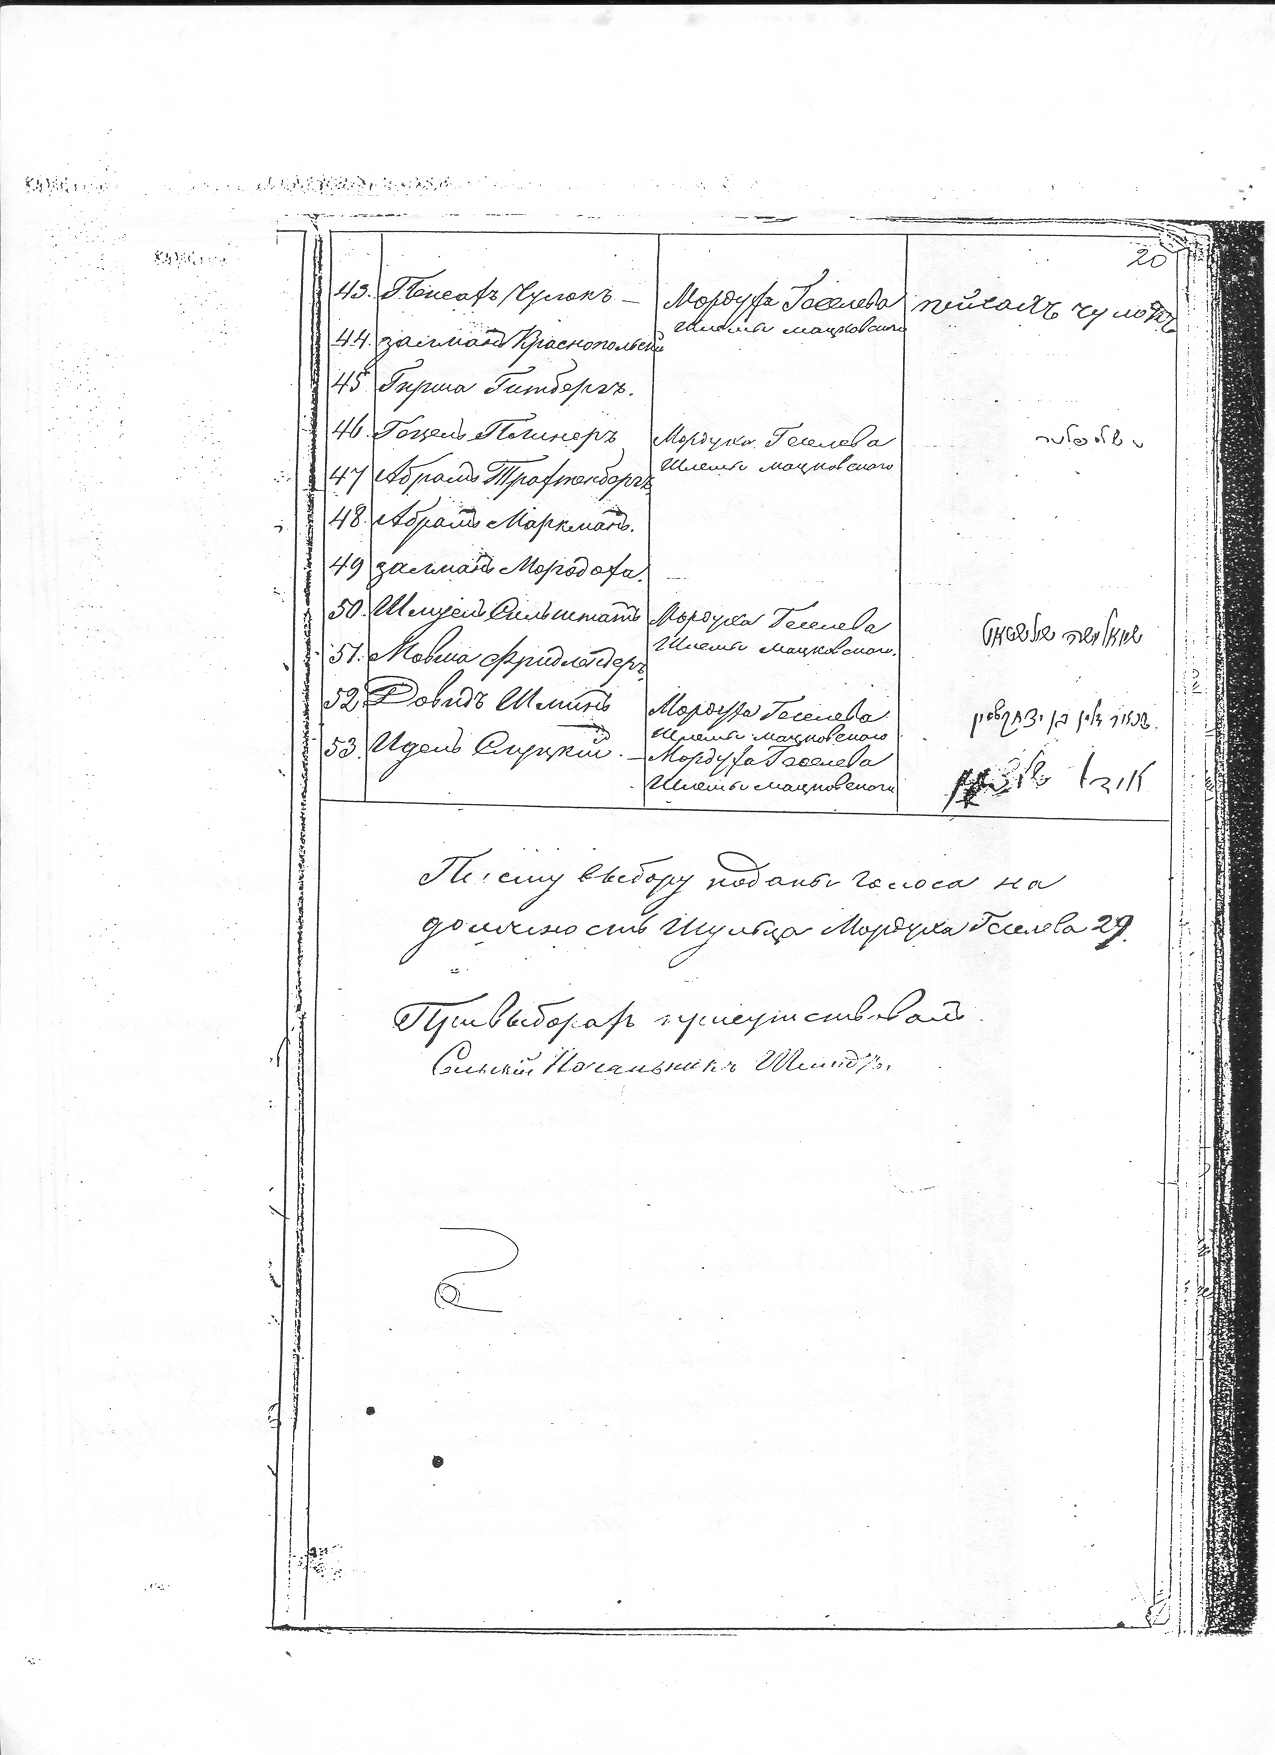 20
43. Пейсахъ Чулокъ — Мордуха Геселева пейсахъ чулокъ
Шлемы Мацковского
44. Залманъ Краснопольскій
45 Гирша Гитбергъ.
46. Гоцель Плинеръ Мордуха Геселева
Шлемы Мацковского
47 Абрамъ Трахтенбергъ
48. Абрамъ Маркманъ.
49 Залманъ
50. Шмуель Сильштатъ Мордуха Геселева
Шлемы Мацковского.
51. Мовша Фридлендеръ
52 Довидъ Шлинъ Мордуха Геселева
Шлемы Мацковского
53. Идель Слуцкій. — Мордуха Геселева אידל
Шлемы Мацковского
По сему выбору поданы голоса на
должность Шульца Мордуха Геселева 29.
При выборахъ присутствовалъ
Сельскій Начальникъ